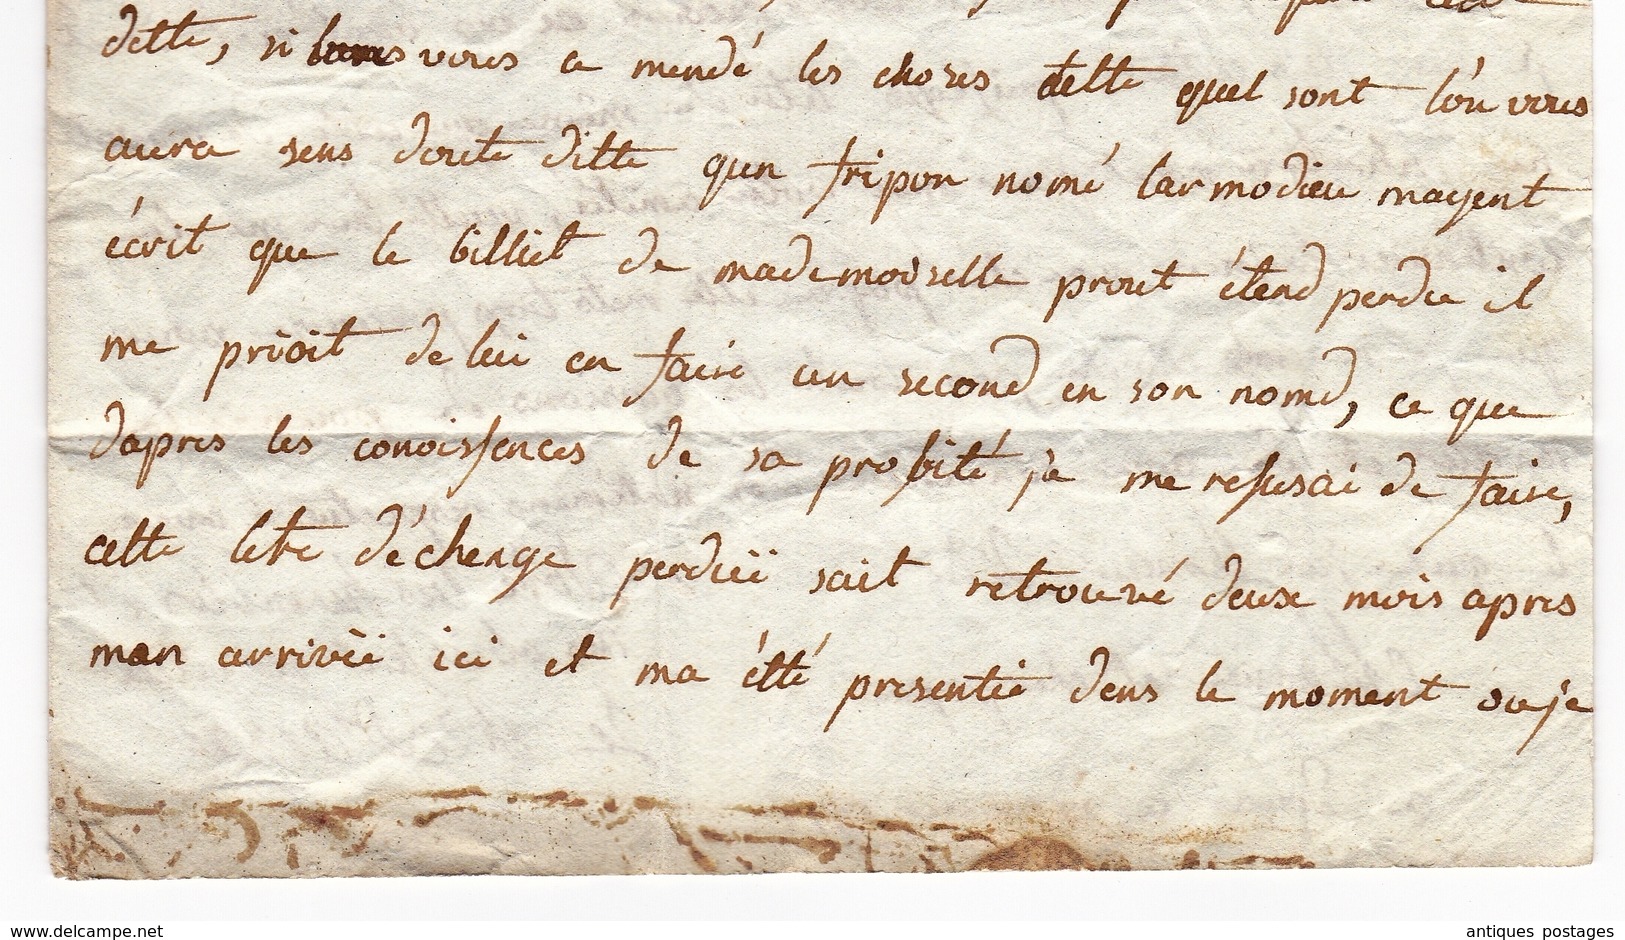 dette, si vous a mendé les choses telle quel sont l'on vous
aura sens doute ditte qun fripon nomé larmodieu mayent
écrit que le billiet de mademoiselle prout étend perdu il
me prioit de lui en faire un second en son nomd, ce que
dapres les conoissences de sa probité je me refusai de faire,
cette letre d'échenge perdüë sait retrouvé deux mois apres
mon arrivéë ici et ma étté presentée dens le moment ou je
www.delcampe.net
antiques postages